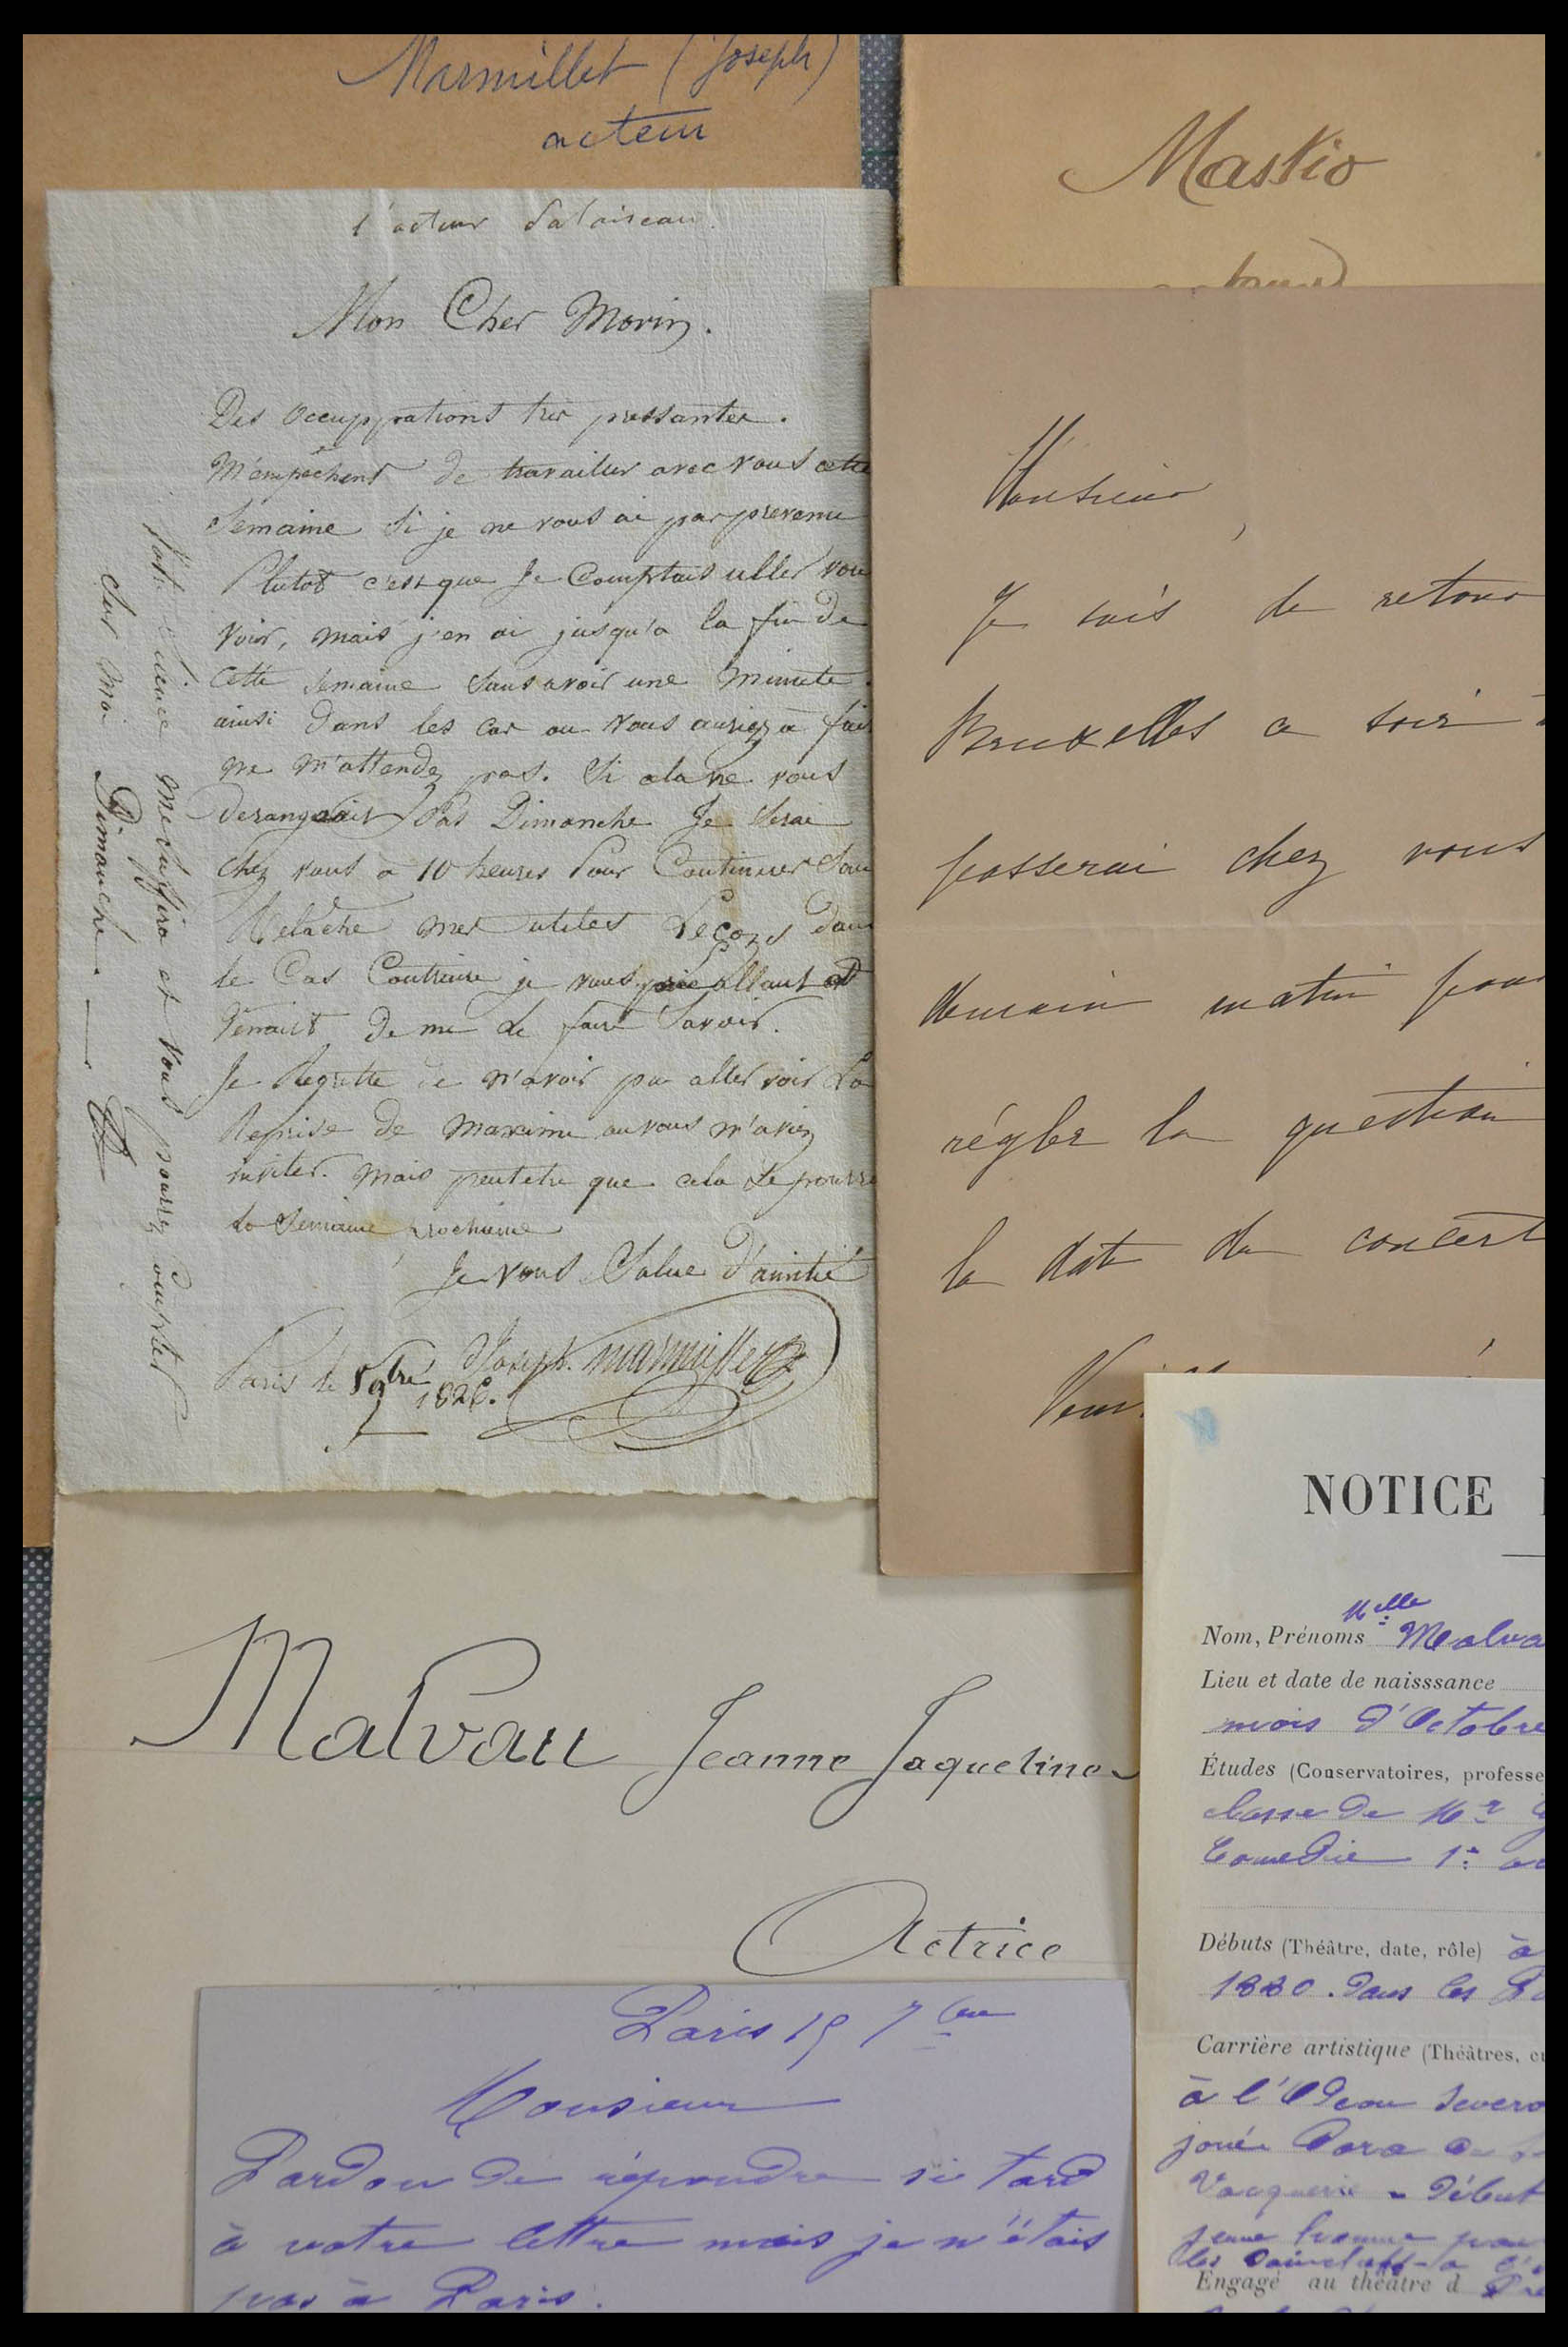 Marmillet (Joseph)
acteur
l'acteur Valaiseau.
Mon Cher Morin.
Des Occupprations très pressantes.
M'empêchent de travailler avec vous cette
Semaine Si je ne vous ai pas prevenu
Plutot c'est que Je Comptais aller vous
Voir, mais j'en ai jusqu'a la fin de
Cette Semaine Sans avoir une Minute.
ainsi Dans les cas ou vous auriez a fair
ne m'attendez pas. Si cela ne vous
Derangeait Pas Dimanche Je Serai
Chez vous a 10 heures Pour Continuer Sans
Relâche mes utiles Leçons dans
le Cas Contraire je vous prie allant et
Venant De me Le faire Savoir.
Je Regrette de n'avoir pu aller voir La
Reprise de Maxime ou vous m'aviez
inviter. Mais peutetre que cela Se pourra
La Semaine prochaine
Je vous Salue D'amitié
Joseph. Marmillet
Paris le 5 9bre 1826.
Votre Silence me Suffira et vous pourrez Compter
Sur Moi Dimanche.
Maskio
Monsieur,
Je suis de retour
Bruxelles ce soir
passerai chez vous
demain matin pour
régler la question
la date du concert
NOTICE
Nom, Prénoms Melle Malva
Lieu et date de naisssance
mois d'Octobre
Études (Conservatoires, professe
classe de Mr
Comedie 1r ac
Débuts (Théâtre, date, rôle) à
1880. Dans les
Carrière artistique (Théâtres,
à l'Odeon Severo
jouée Dora
Vacquerie - Début
jeune homme
les
Engagé au théâtre d
Malvau Jeanne Jaqueline
Actrice
Paris 19 7bre
Monsieur
Pardon de répondre si tard
à votre lettre mais je n'étais
pas à Paris.